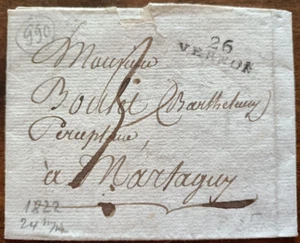 990
26
VERNON
Monsieur
Boutel (Barthelemy)
Percepteur,
à Martaguy
5
1822
24